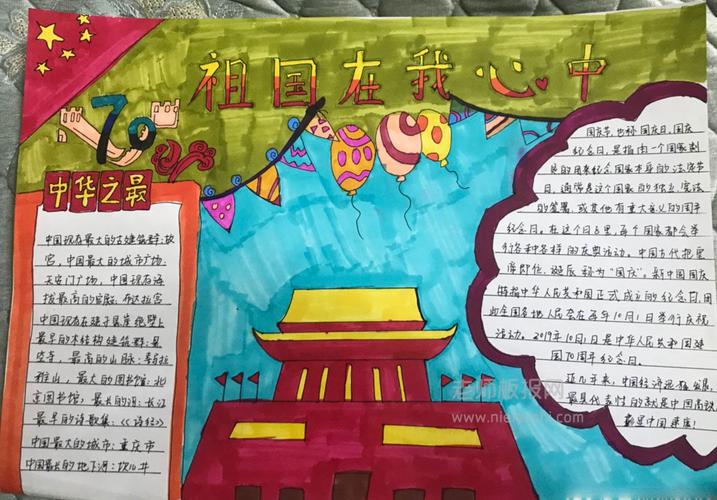 祖国在我心中
70
中华之最
中国现存最大的古建筑群:故
宫,中国最大的城市广场:
天安门广场,中国现存海
拔最高的宫殿:布达拉宫
中国现存在建于悬崖绝壁上
最早的木结构建筑群:悬
空寺,最高的山脉:喜马拉
雅山,最大的图书馆:北
京图书馆,最长的河:长江
最早的诗歌集:《诗经》
中国最大的城市:重庆市
中国最长的地下河:坎儿井
国庆节,也称国庆日、国庆
纪念日,是指由一个国家制
定的用来纪念国家本身的法定节
日,通常是这个国家的独立、宪法
的签署,或其他有重大意义的周年
纪念日。在这个日子里,每个国家都会举
行各种各样的庆典活动。中国古代把皇
帝即位、诞辰称为"国庆"。新中国国庆
特指中华人民共和国正式成立的纪念日,因
此全国各地人民会在每年10月1日举行庆祝
活动。2019年10月1日是中华人民共和国建
国70周年纪念日。
近几年来,中国经济迅猛发展,
最具代表性的就是中国高铁
老师板报网